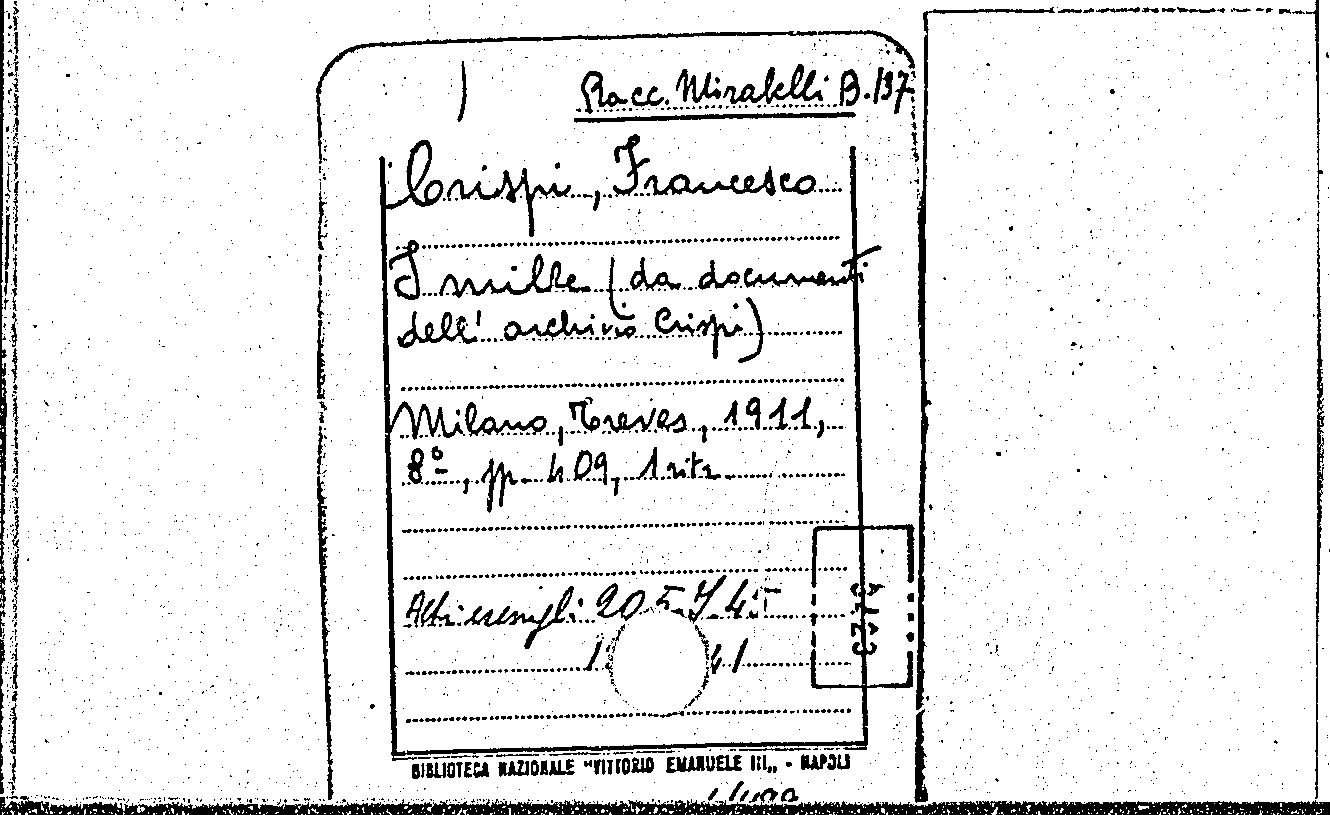 Racc. Mirabelli B. 137
Crispi, Francesco
I mille (da documenti
dell' archivio Crispi)
Milano, Treves, 1911,
8º, pp. 409, 1 ritr.
Altri esempli: 205. J. 45
BIBLIOTECA NAZIONALE "VITTORIO EMANUELE III„ - NAPOLI